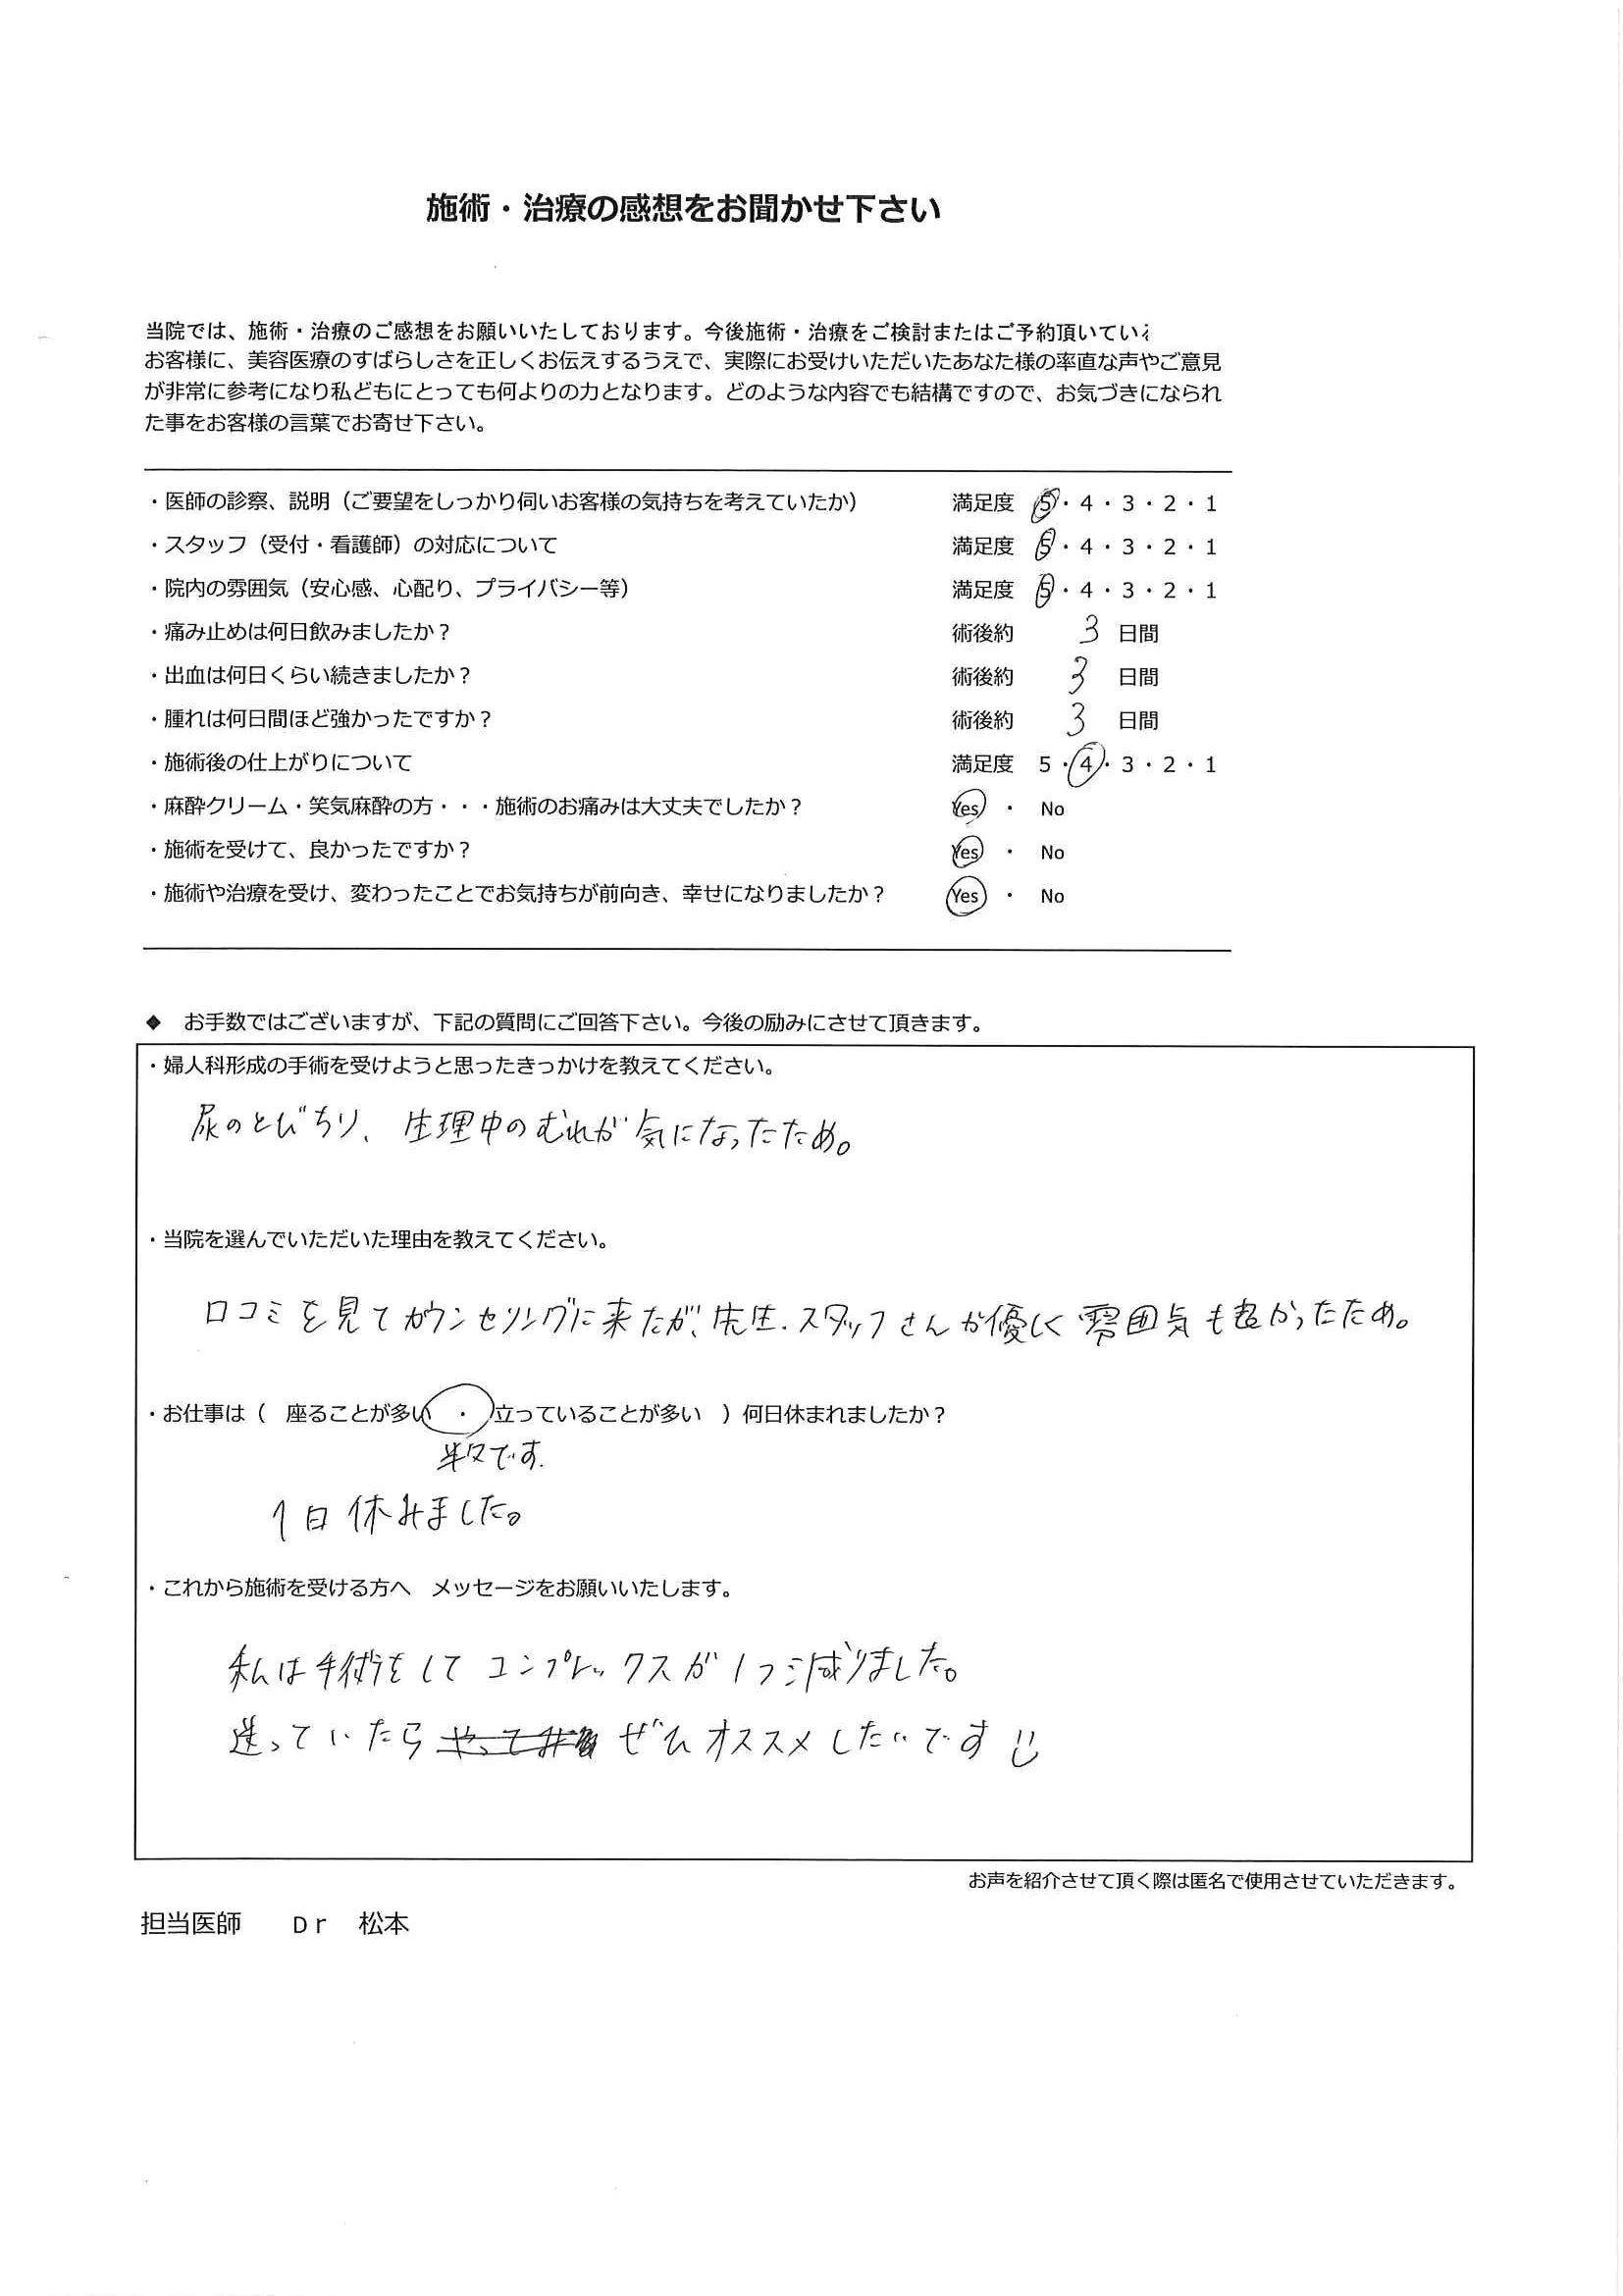 施術・治療の感想をお聞かせ下さい
当院では、施術・治療のご感想をお願いいたしております。今後施術・治療をご検討またはご予約頂いている
お客様に、美容医療のすばらしさを正しくお伝えするうえで、実際にお受けいただいたあなた様の率直な声やご意見
が非常に参考になり私どもにとっても何よりの力となります。どのような内容でも結構ですので、お気づきになられ
た事をお客様の言葉でお寄せ下さい。
・医師の診察、説明（ご要望をしっかり伺いお客様の気持ちを考えていたか） 満足度 5・4・3・2・1
・スタッフ（受付・看護師）の対応について 満足度 5・4・3・2・1
・院内の雰囲気（安心感、心配り、プライバシー等） 満足度 5・4・3・2・1
・痛み止めは何日飲みましたか？ 術後約 3 日間
・出血は何日くらい続きましたか？ 術後約 3 日間
・腫れは何日間ほど強かったですか？ 術後約 3 日間
・施術後の仕上がりについて 満足度 5・4・3・2・1
・麻酔クリーム・笑気麻酔の方・・・施術のお痛みは大丈夫でしたか？ Yes ・ No
・施術を受けて、良かったですか？ Yes ・ No
・施術や治療を受け、変わったことでお気持ちが前向き、幸せになりましたか？ Yes ・ No
◆ お手数ではございますが、下記の質問にご回答下さい。今後の励みにさせて頂きます。
・婦人科形成の手術を受けようと思ったきっかけを教えてください。
尿のとびちり、生理中のむれが気になったため。
・当院を選んでいただいた理由を教えてください。
口コミを見てカウンセリングに来たが、先生.スタッフさんが優しく雰囲気も良かったため。
・お仕事は（ 座ることが多い ・ 立っていることが多い ）何日休まれましたか？
半々です.
1日休みました。
・これから施術を受ける方へ メッセージをお願いいたします。
私は手術をしてコンプレックスが1つ減りました。
迷っていたら ぜひオススメしたいです
お声を紹介させて頂く際は匿名で使用させていただきます。
担当医師 Dr 松本